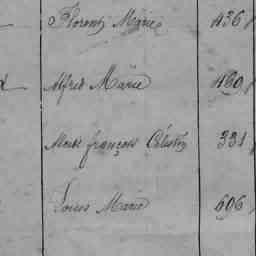 Florent Marie 436
Alfred Marie 460
françois Célestin 331
Louis Marie 606